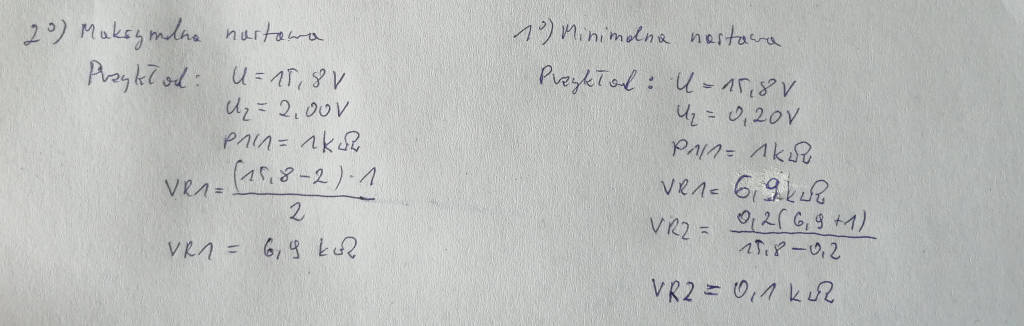 2°) Maksymalna nastawa
Przykład: U = 15,8V
U₂ = 2,00V
P1/1 = 1kΩ
VR1 = (15,8 - 2) · 1
2
VR1 = 6,9 kΩ
1°) Minimalna nastawa
Przykład: U = 15,8V
U₂ = 0,20V
P1/1 = 1kΩ
VR1 = 6,9kΩ
VR2 = 0,2(6,9+1)
15,8 - 0,2
VR2 = 0,1 kΩ